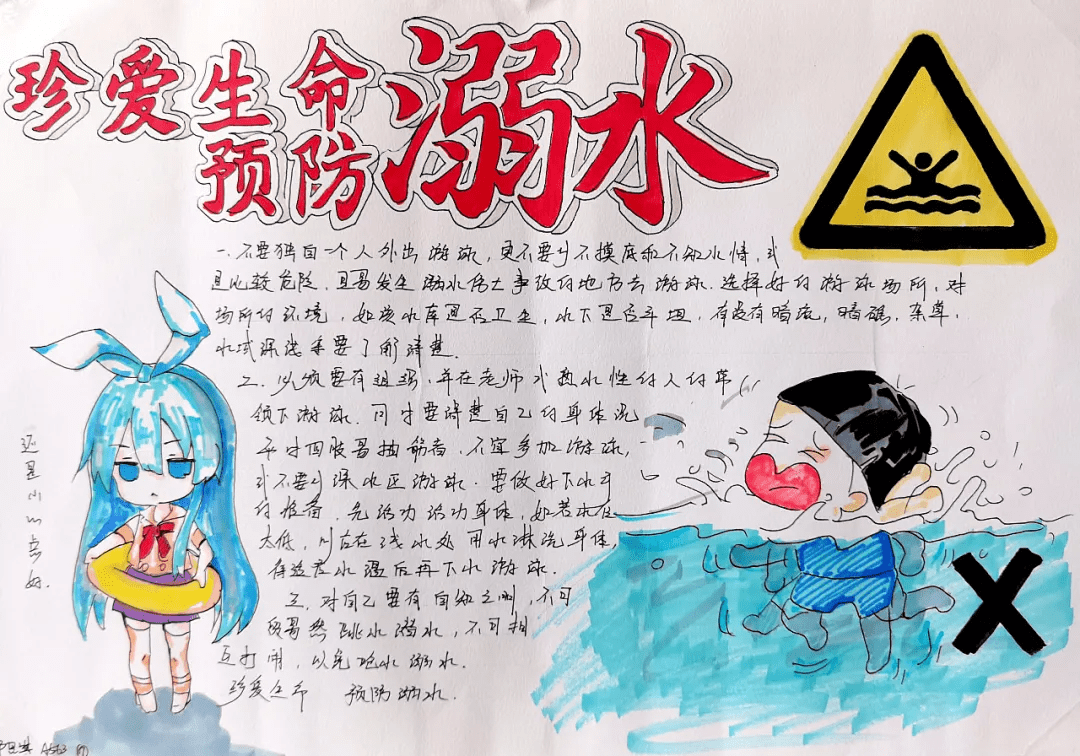 珍爱生命
预防溺水
一.不要独自一个人外出游泳,更不要到不摸底和不知水情,或
且比较危险,且易发生溺水伤亡事故的地方去游泳.选择好的游泳场所,对
场所的环境,如该水库是否卫生,水下是否平坦,有没有暗流,暗礁,杂草,
水域深浅等要了解清楚.
二.必须要有组织,并在老师或熟水性的人的带
领下游泳.同时要清楚自己的身体况
平时四肢易抽筋者.不宜参加游泳,
或不要到深水区游泳.要做好下水前
的准备.先活动活动身体,如若水温
太低,则应在浅水处用水淋洗身体,
待适应水温后再下水游泳.
三.对自己要有自知之明,不可
贸易然跳水潜水,不可相
互打闹,以免呛水溺水.
珍爱生命 预防溺水.
还是小心点好.